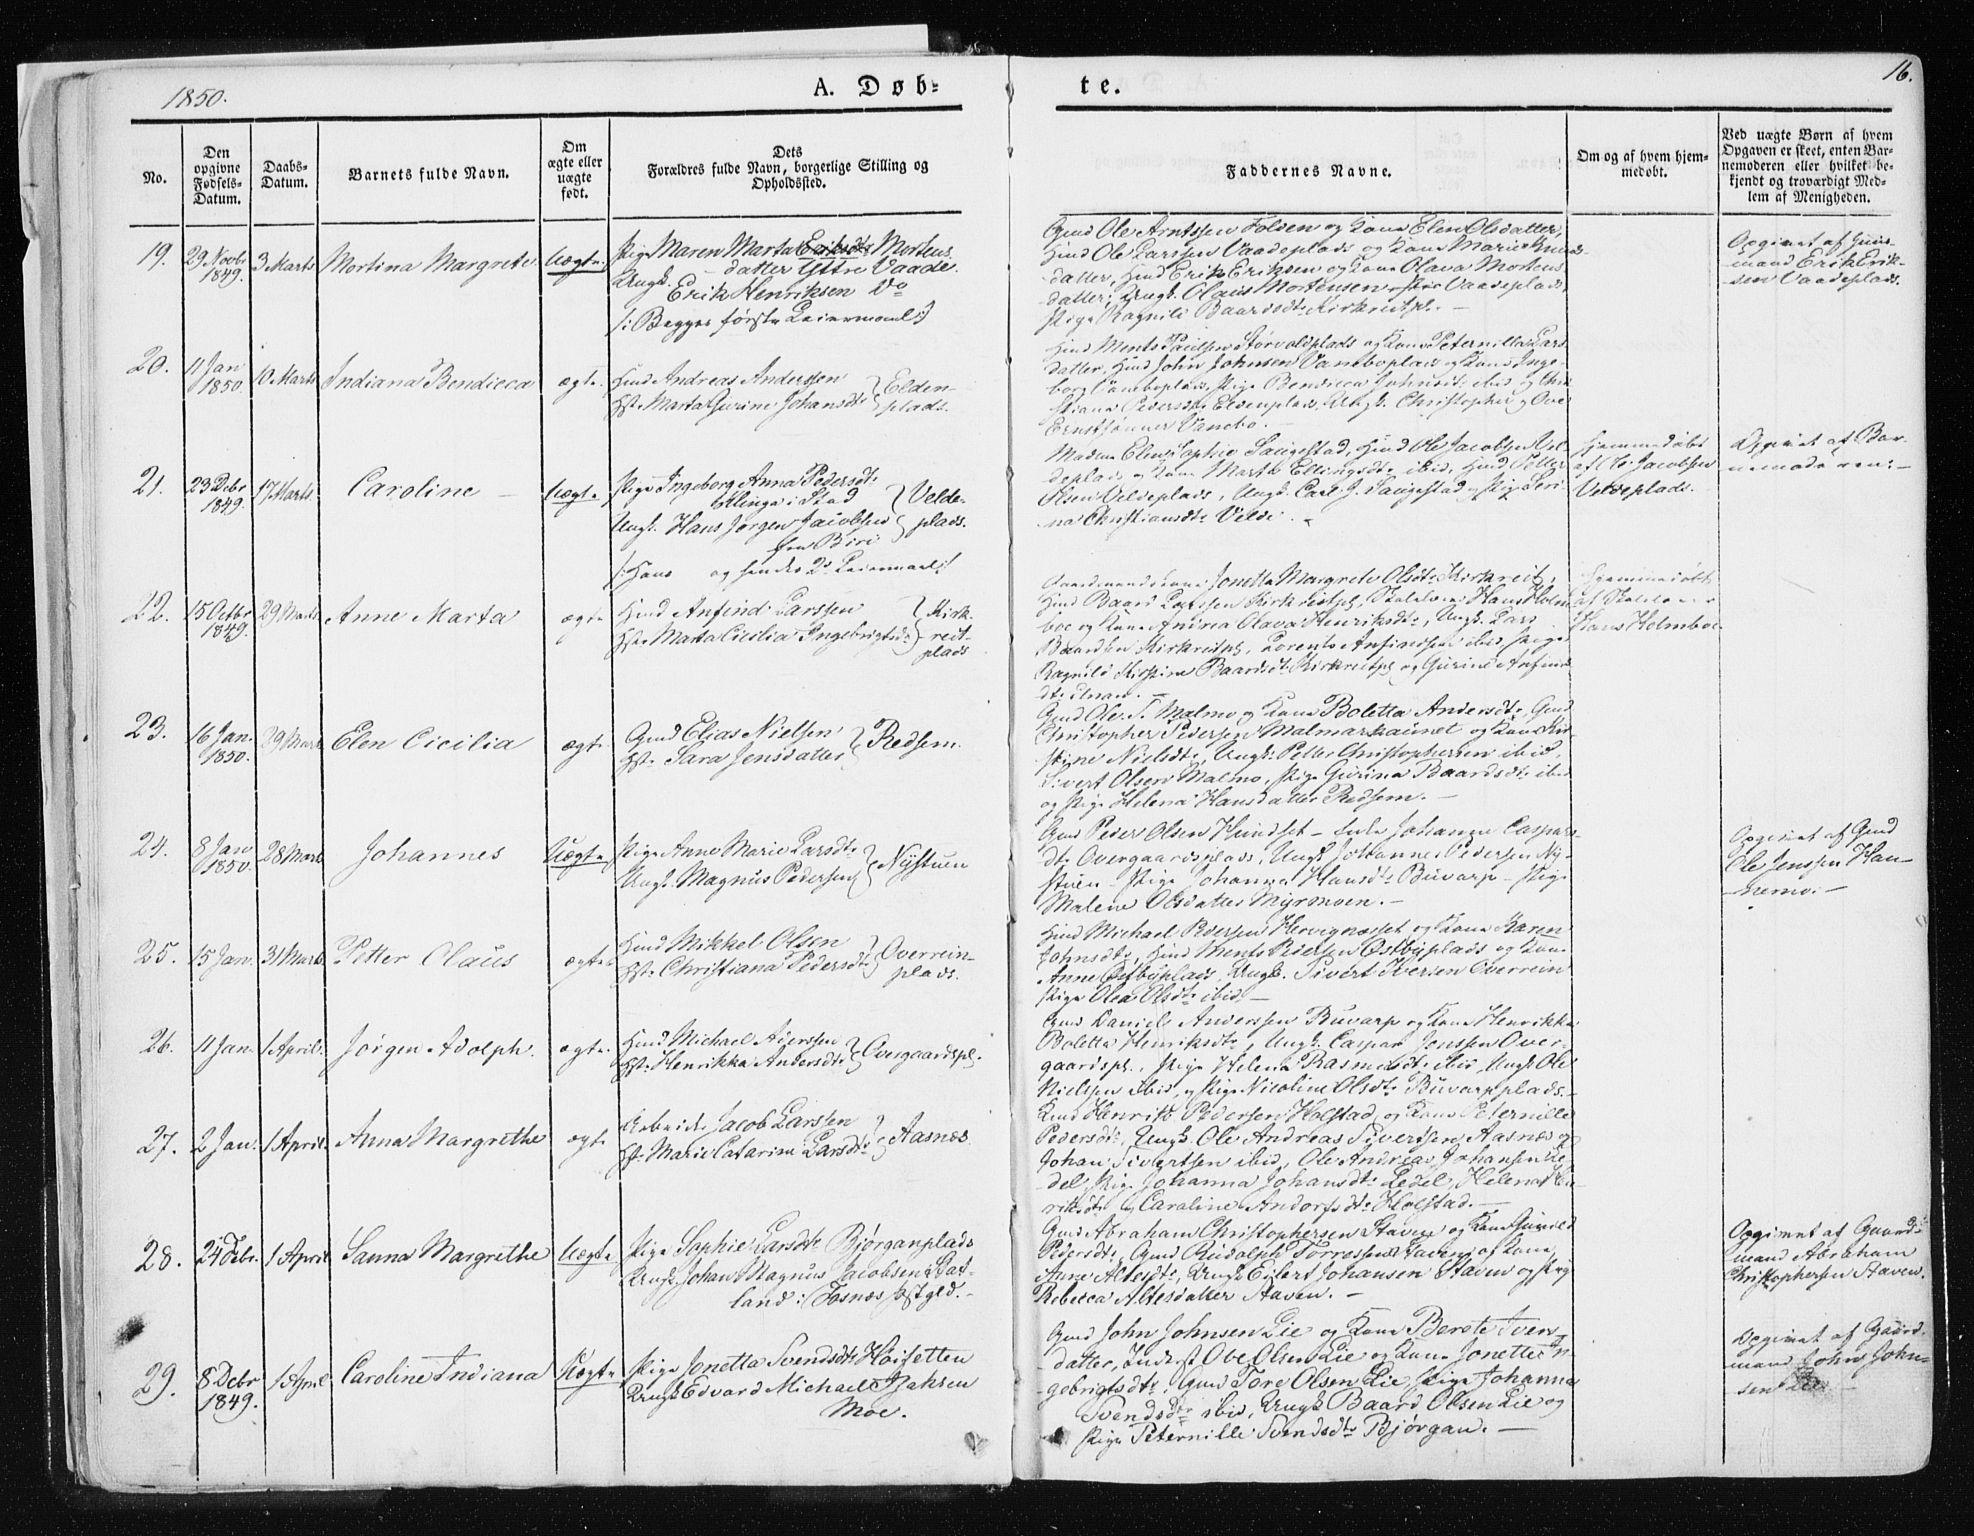 1850.
A. Døb-
te.
16.
No.
Den opgivne Fødsels-Datum.
Daabs-Datum.
Barnets fulde Navn.
Om ægte eller uægte født.
Dets Forældres fulde Navn, borgerlige Stilling og Opholdssted.
Faddernes Navne.
Om og af hvem hjemmedøbt.
Ved uægte Børn af hvem Opgaven er skeet, enten Barnemoderen eller hvilket bekjendt og troværdigt Medlem af Menigheden.
19. 29 Novbr 1849. 3 Marts Mortina Margrete Uægte
Pige Maren Marta Mortens
datter Yttre Vaade.
Ungk. Erik Henriksen Do
/: Begges første Leiermaal :/
Gmd Ole Arntssen Folden og Kone Elen Olsdatter,
Hmd Ole Larssen Vaadeplads og Kone Marie Knuds
datter, Hmd Erik Eriksen og Kone Olava Mortens
datter, Ungk. Olaus Mortensen Vaadeplads,
Pige Ragnild Baardsdt. Kirkreitpl. -
Opgivet af Huus-
mand Erik Erik-
sen Vaadeplads.
20. 11 Jan 1850. 10 Marts Indiana Bendicca ægte
Hmd Andreas Anderssen
Hst. Marta Gurine Johansdt.
Elden-
plads.
Hmd Ments Paulsen Størvoldplads og Kone Peternilla Lars
datter, Hmd John Johnsen Vanneboplads og Kone Inge-
borg Vanneboplads, Pige Bendicca Johnsdt. ibid og Chri
stiana Pedersdt. Eldenplads, Ungk. Christopher og Ove
Ernstsønner Vannebo. -
21. 23 Debr 1849. 17 Marts Caroline - Uægte
Pige Ingeborg Anna Pedersdt.
Ungk. Hans Jørgen Jacobsen
fra Biri
/: Hans og hendes 2d Leiermaal :/
Velde-
plads.
Madam Elen Sophie Saugestad, Hmd Ole Jacobsen Vel-
deplads og Kone Marte Ellingsdt. ibid, Hmd Petter
Olsen Veldeplads, Ungk. Carl J. Saugestad og Pige Seri-
na Christiansdt. Velde.
Hjemmedøbt
af Ole Jacobsen
Veldeplads.
Opgivet af Bar-
nemoderen. -
22. 15 Octbr 1849. 29 Marts Anne Marta ægte
Hmd Anfind Larssen
Hst. Marta Cicilia Ingebrigtsdt.
Kirk-
reit-
plads
Gaardmandskone Jonetta Margrete Olsdt. Kirkreit,
Hmd Baard Larssen Kirkreitpl., Skolelærer Hans Holm
boe og Kone Andrea Olava Henriksdt., Ungk. Lars
Baardsen Kirkreitpl., Lorents Anfindsen ibid, Pige
Ragnild Kirstine Baardsdt. Kirkreitpl. og Gurine Anfinds
dt.
Hjemmedøbt
af Skolelærer
Hans Holmboe
23. 16 Jan. 1850. 29 Marts Elen Cicilia ægte
Gmd Elias Nielsen
Hst. Sara Jensdatter
Redsem.
Gmd Ole T. Malmo og Kone Boletta Andersdt., Gmd
Christopher Pedersen Malmarkaunet og Kone Kir-
stine Nielsdt., Ungk. Petter Christophersen ibid,
Sivert Olsen Malmo, Pige Gurina Baardsdt. ibid
og Pige Helena Hansdatter Redsem. -
24. 8 Jan 1850. 28 Marts Johannes Uægte
Pige Anne Marie Larsdt.
Ungk. Magnus Pedersen
Nystuen
Gmd Peder Olsen Hundset - Enke Johanna Caspars
dt. Overgaardsplads, Ungk. Johannes Pedersen Ny-
stuen - Pige Johanna Hansdt. Buvarp - Pige
Malene Olsdatter Myrmoen. -
Opgivet af Gmd
Ole Jenssen Han-
nemo. -
25. 15 Jan. 31 Marts Petter Olaus ægte
Hmd Mikkel Olsen
Hst. Christiana Pedersdt.
Overrein-
plads.
Hmd Michael Pedersen Hervignæsset og Kone Karen
Johnsdt., Hmd Ments Pedersen Østbyplads og Kone
Anne Østbyplads, Ungk. Sivert Iversen Overrein
Pige Olea Olsdt. ibid. -
26. 11 Jan. 1 April. Jørgen Adolph. ægte
Hmd Michael Anderssen
Hst. Henrikka Andersdt.
Overgaardspl.
Gmd Daniel Anderssen Buvarp og Kone Henrikka
Boletta Henriksdt., Ungk. Caspar Jenssen Over-
gaardspl., Pige Helena Rasmusdt. ibid, Ungk. Ole
Nielssen ibid, og Pige Nicoline Olsdt. Buvarpplads. -
27. 2 Jan. 1 April Anna Margrethe ægte
Arbeider Jacob Larssen
Hst. Marie Catarina Larsdt.
Aasnæs
Gmd Henrik Pedersen Holstad og Kone Peternille
Pedersdt., Ungk. Ole Andreas Sivertsen Aasnæs og
Johan Sivertsen ibid, Ole Andreas Johansen Le-
del, Pige Johanna Johansdt. Ledel, Helena Hen-
riksdt. og Caroline Andorsdt. Holstad. -
28. 24 Febr. 1 April Sanna Margrethe Uægte
Pige Sophie Larsdt. Bjørganplads
Ungk. Johan Magnus Jacobsen Sat-
land i Fosnæs Præstgjeld. -
Gmd Abraham Christophersen Staven og Kone Gunild
Pedersdt., Gmd Rudolph Torressen Staven og Kone
Anne Altesdt., Ungk. Eilert Johansen Staven og Pige
Rebecca Altesdatter Staven. -
Opgivet af Gaard-
mand Abraham
Christophersen Staven.
29. 8 Debr 1849. 1 April Caroline Indiana Uægte
Pige Jonetta Svendsdt. Høisetten
Ungk. Edvard Michael Isaksen
Moe.
Gmd John Johnsen Lie og Kone Berete Iver-
datter, Inderst Ove Olsen Lie og Kone Jonetta In-
gebrigtsdt., Gmd Tore Olsen Lie, Pige Johanna
Svendsdt. ibid, Ungk. Baard Olsen Lie og
Pige Peternille Svendsdt. Bjørgan. -
Opgivet af Gaard-
mand John John-
sen Lie. -